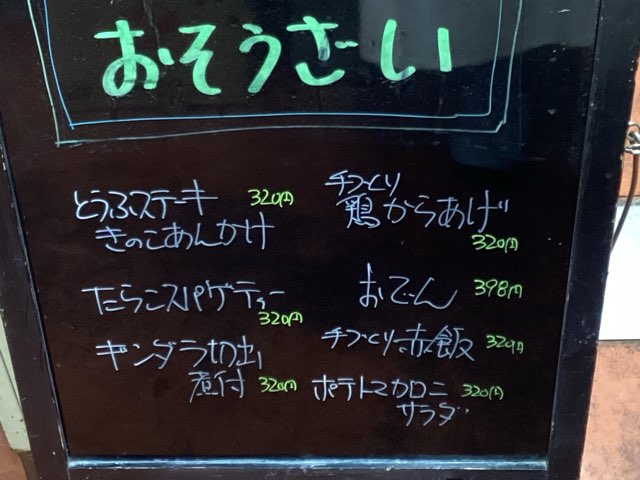 おそうざい
とうふステーキ 320円
きのこあんかけ
たらこスパゲティー
320円
ギンダラ切出
煮付 320円
手づくり
鶏からあげ
320円
おでん 398円
手づくり赤飯 320円
ポテトマカロニ 320円
サラダ